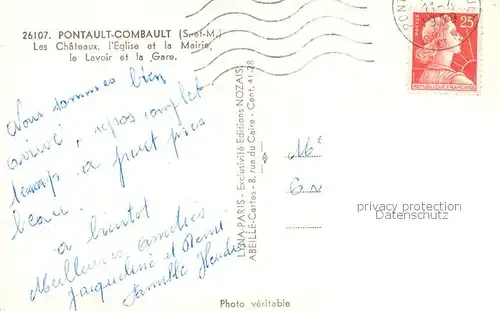 26107. PONTAULT-COMBAULT (S.-et-M.)
Les Châteaux, l'Eglise et la Mairie,
le Lavoir et la Gare.
Nous sommes bien
arrivé repos complet
temps a peut près
beau.
a bientot
Meilleures amitiés
Jacqueline et Rémi
famille
LYNA-PARIS - Exclusivité Editions NOZAIS
ABEILLE-Cartes - 8, rue du Caire - Cent. 41-28
Photo véritable
POSTES
25F
REPUBLIQUE FRANÇAISE
privacy protection
Datenschutz